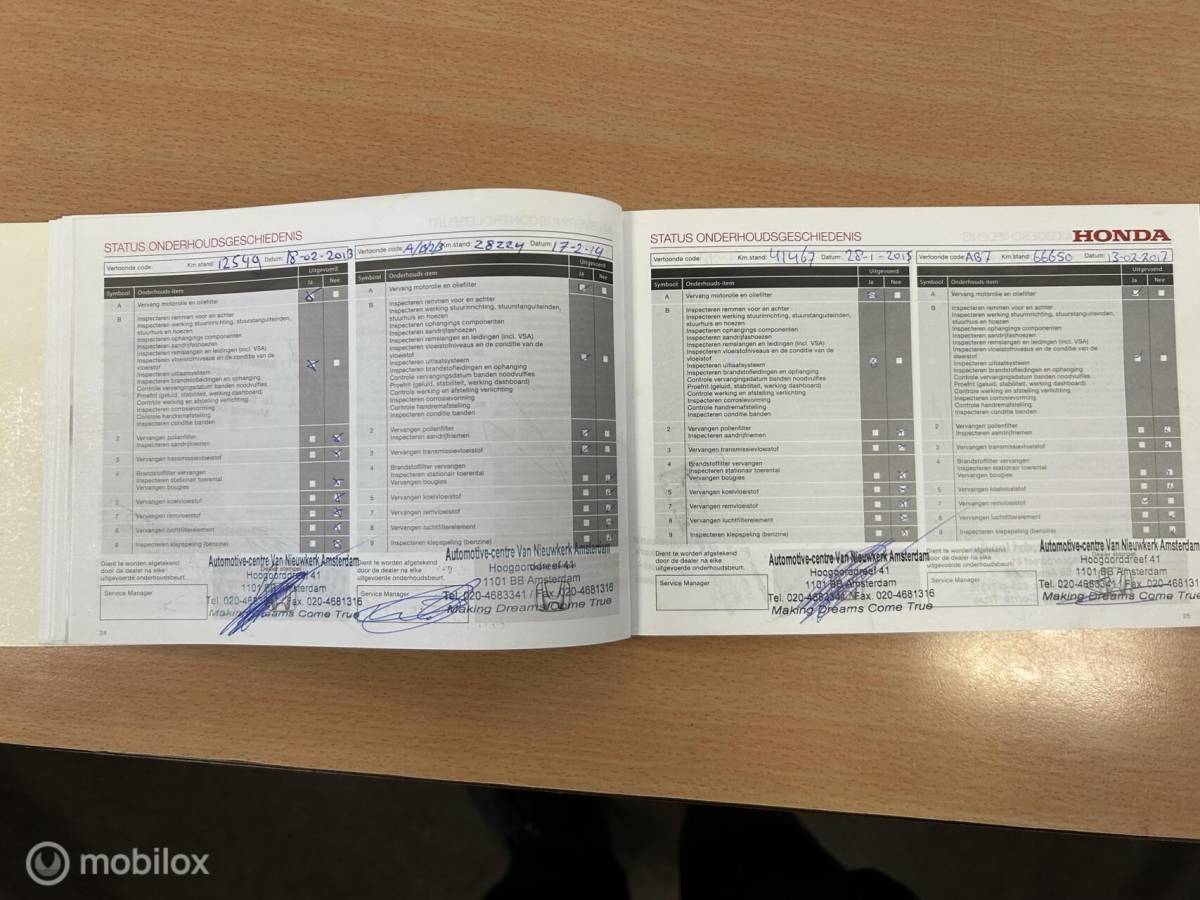 STATUS ONDERHOUDSGESCHIEDENIS
Vertoonde code: Km.stand: 12549 Datum: 18-02-2013
Uitgevoerd
Symbool Onderhouds-item Ja Nee
A Vervang motorolie en oliefilter
B Inspecteren remmen voor en achter
Inspecteren werking stuurinrichting, stuurstanguiteinden,
stuurhuis en hoezen
Inspecteren ophangings componenten
Inspecteren aandrijfashoezen
Inspecteren remslangen en leidingen (incl. VSA)
Inspecteren vloeistofniveaus en de conditie van de
vloeistof
Inspecteren uitlaatsysteem
Inspecteren brandstofleidingen en ophanging
Controle vervangingsdatum banden noodvulfles
Proefrit (geluid, stabiliteit, werking dashboard)
Controle werking en afstelling verlichting
Inspecteren corrosievorming
Controle handremafstelling
Inspecteren conditie banden
2 Vervangen pollenfilter
Inspecteren aandrijfriemen
3 Vervangen transmissievloeistof
4 Brandstoffilter vervangen
Inspecteren stationair toerental
Vervangen bougies
5 Vervangen koelvloeistof
7 Vervangen remvloeistof
8 Vervangen luchtfilterelement
9 Inspecteren klepspeling (benzine)
Dient te worden afgetekend
door de dealer na elke
uitgevoerde onderhoudsbeurt.
Service Manager
Automotive-centre Van Nieuwkerk Amsterdam
Hoogoorddreef 41
1101 BB Amsterdam
Tel. 020-4683341 / Fax. 020-4681316
Making Dreams Come True
34
Vertoonde code: A/B/2/3 Km.stand: 28224 Datum: 17-2-14
Uitgevoerd
Symbool Onderhouds-item Ja Nee
A Vervang motorolie en oliefilter
B Inspecteren remmen voor en achter
Inspecteren werking stuurinrichting, stuurstanguiteinden,
stuurhuis en hoezen
Inspecteren ophangings componenten
Inspecteren aandrijfashoezen
Inspecteren remslangen en leidingen (incl. VSA)
Inspecteren vloeistofniveaus en de conditie van de
vloeistof
Inspecteren uitlaatsysteem
Inspecteren brandstofleidingen en ophanging
Controle vervangingsdatum banden noodvulfles
Proefrit (geluid, stabiliteit, werking dashboard)
Controle werking en afstelling verlichting
Inspecteren corrosievorming
Controle handremafstelling
Inspecteren conditie banden
2 Vervangen pollenfilter
Inspecteren aandrijfriemen
3 Vervangen transmissievloeistof
4 Brandstoffilter vervangen
Inspecteren stationair toerental
Vervangen bougies
5 Vervangen koelvloeistof
7 Vervangen remvloeistof
8 Vervangen luchtfilterelement
9 Inspecteren klepspeling (benzine)
Dient te worden afgetekend
door de dealer na elke
uitgevoerde onderhoudsbeurt.
Service Manager
Automotive-centre Van Nieuwkerk Amsterdam
Hoogoorddreef 41
1101 BB Amsterdam
Tel. 020-4683341 / Fax. 020-4681316
Making Dreams Come True
STATUS ONDERHOUDSGESCHIEDENIS
HONDA
Vertoonde code: Km.stand: 41467 Datum: 28-1-2015
Uitgevoerd
Symbool Onderhouds-item Ja Nee
A Vervang motorolie en oliefilter
B Inspecteren remmen voor en achter
Inspecteren werking stuurinrichting, stuurstanguiteinden,
stuurhuis en hoezen
Inspecteren ophangings componenten
Inspecteren aandrijfashoezen
Inspecteren remslangen en leidingen (incl. VSA)
Inspecteren vloeistofniveaus en de conditie van de
vloeistof
Inspecteren uitlaatsysteem
Inspecteren brandstofleidingen en ophanging
Controle vervangingsdatum banden noodvulfles
Proefrit (geluid, stabiliteit, werking dashboard)
Controle werking en afstelling verlichting
Inspecteren corrosievorming
Controle handremafstelling
Inspecteren conditie banden
2 Vervangen pollenfilter
Inspecteren aandrijfriemen
3 Vervangen transmissievloeistof
4 Brandstoffilter vervangen
Inspecteren stationair toerental
Vervangen bougies
5 Vervangen koelvloeistof
7 Vervangen remvloeistof
8 Vervangen luchtfilterelement
9 Inspecteren klepspeling (benzine)
Dient te worden afgetekend
door de dealer na elke
uitgevoerde onderhoudsbeurt.
Service Manager
Automotive-centre Van Nieuwkerk Amsterdam
Hoogoorddreef 41
1101 BB Amsterdam
Tel. 020-4683341 / Fax. 020-4681316
Making Dreams Come True
Vertoonde code: AB7 Km.stand: 66650 Datum: 13-02-2017
Uitgevoerd
Symbool Onderhouds-item Ja Nee
A Vervang motorolie en oliefilter
B Inspecteren remmen voor en achter
Inspecteren werking stuurinrichting, stuurstanguiteinden,
stuurhuis en hoezen
Inspecteren ophangings componenten
Inspecteren aandrijfashoezen
Inspecteren remslangen en leidingen (incl. VSA)
Inspecteren vloeistofniveaus en de conditie van de
vloeistof
Inspecteren uitlaatsysteem
Inspecteren brandstofleidingen en ophanging
Controle vervangingsdatum banden noodvulfles
Proefrit (geluid, stabiliteit, werking dashboard)
Controle werking en afstelling verlichting
Inspecteren corrosievorming
Controle handremafstelling
Inspecteren conditie banden
2 Vervangen pollenfilter
Inspecteren aandrijfriemen
3 Vervangen transmissievloeistof
4 Brandstoffilter vervangen
Inspecteren stationair toerental
Vervangen bougies
5 Vervangen koelvloeistof
7 Vervangen remvloeistof
8 Vervangen luchtfilterelement
9 Inspecteren klepspeling (benzine)
Dient te worden afgetekend
door de dealer na elke
uitgevoerde onderhoudsbeurt.
Service Manager
Automotive-centre Van Nieuwkerk Amsterdam
Hoogoorddreef 41
1101 BB Amsterdam
Tel. 020-4683341 / Fax. 020-468131
Making Dreams Come True
mobilox